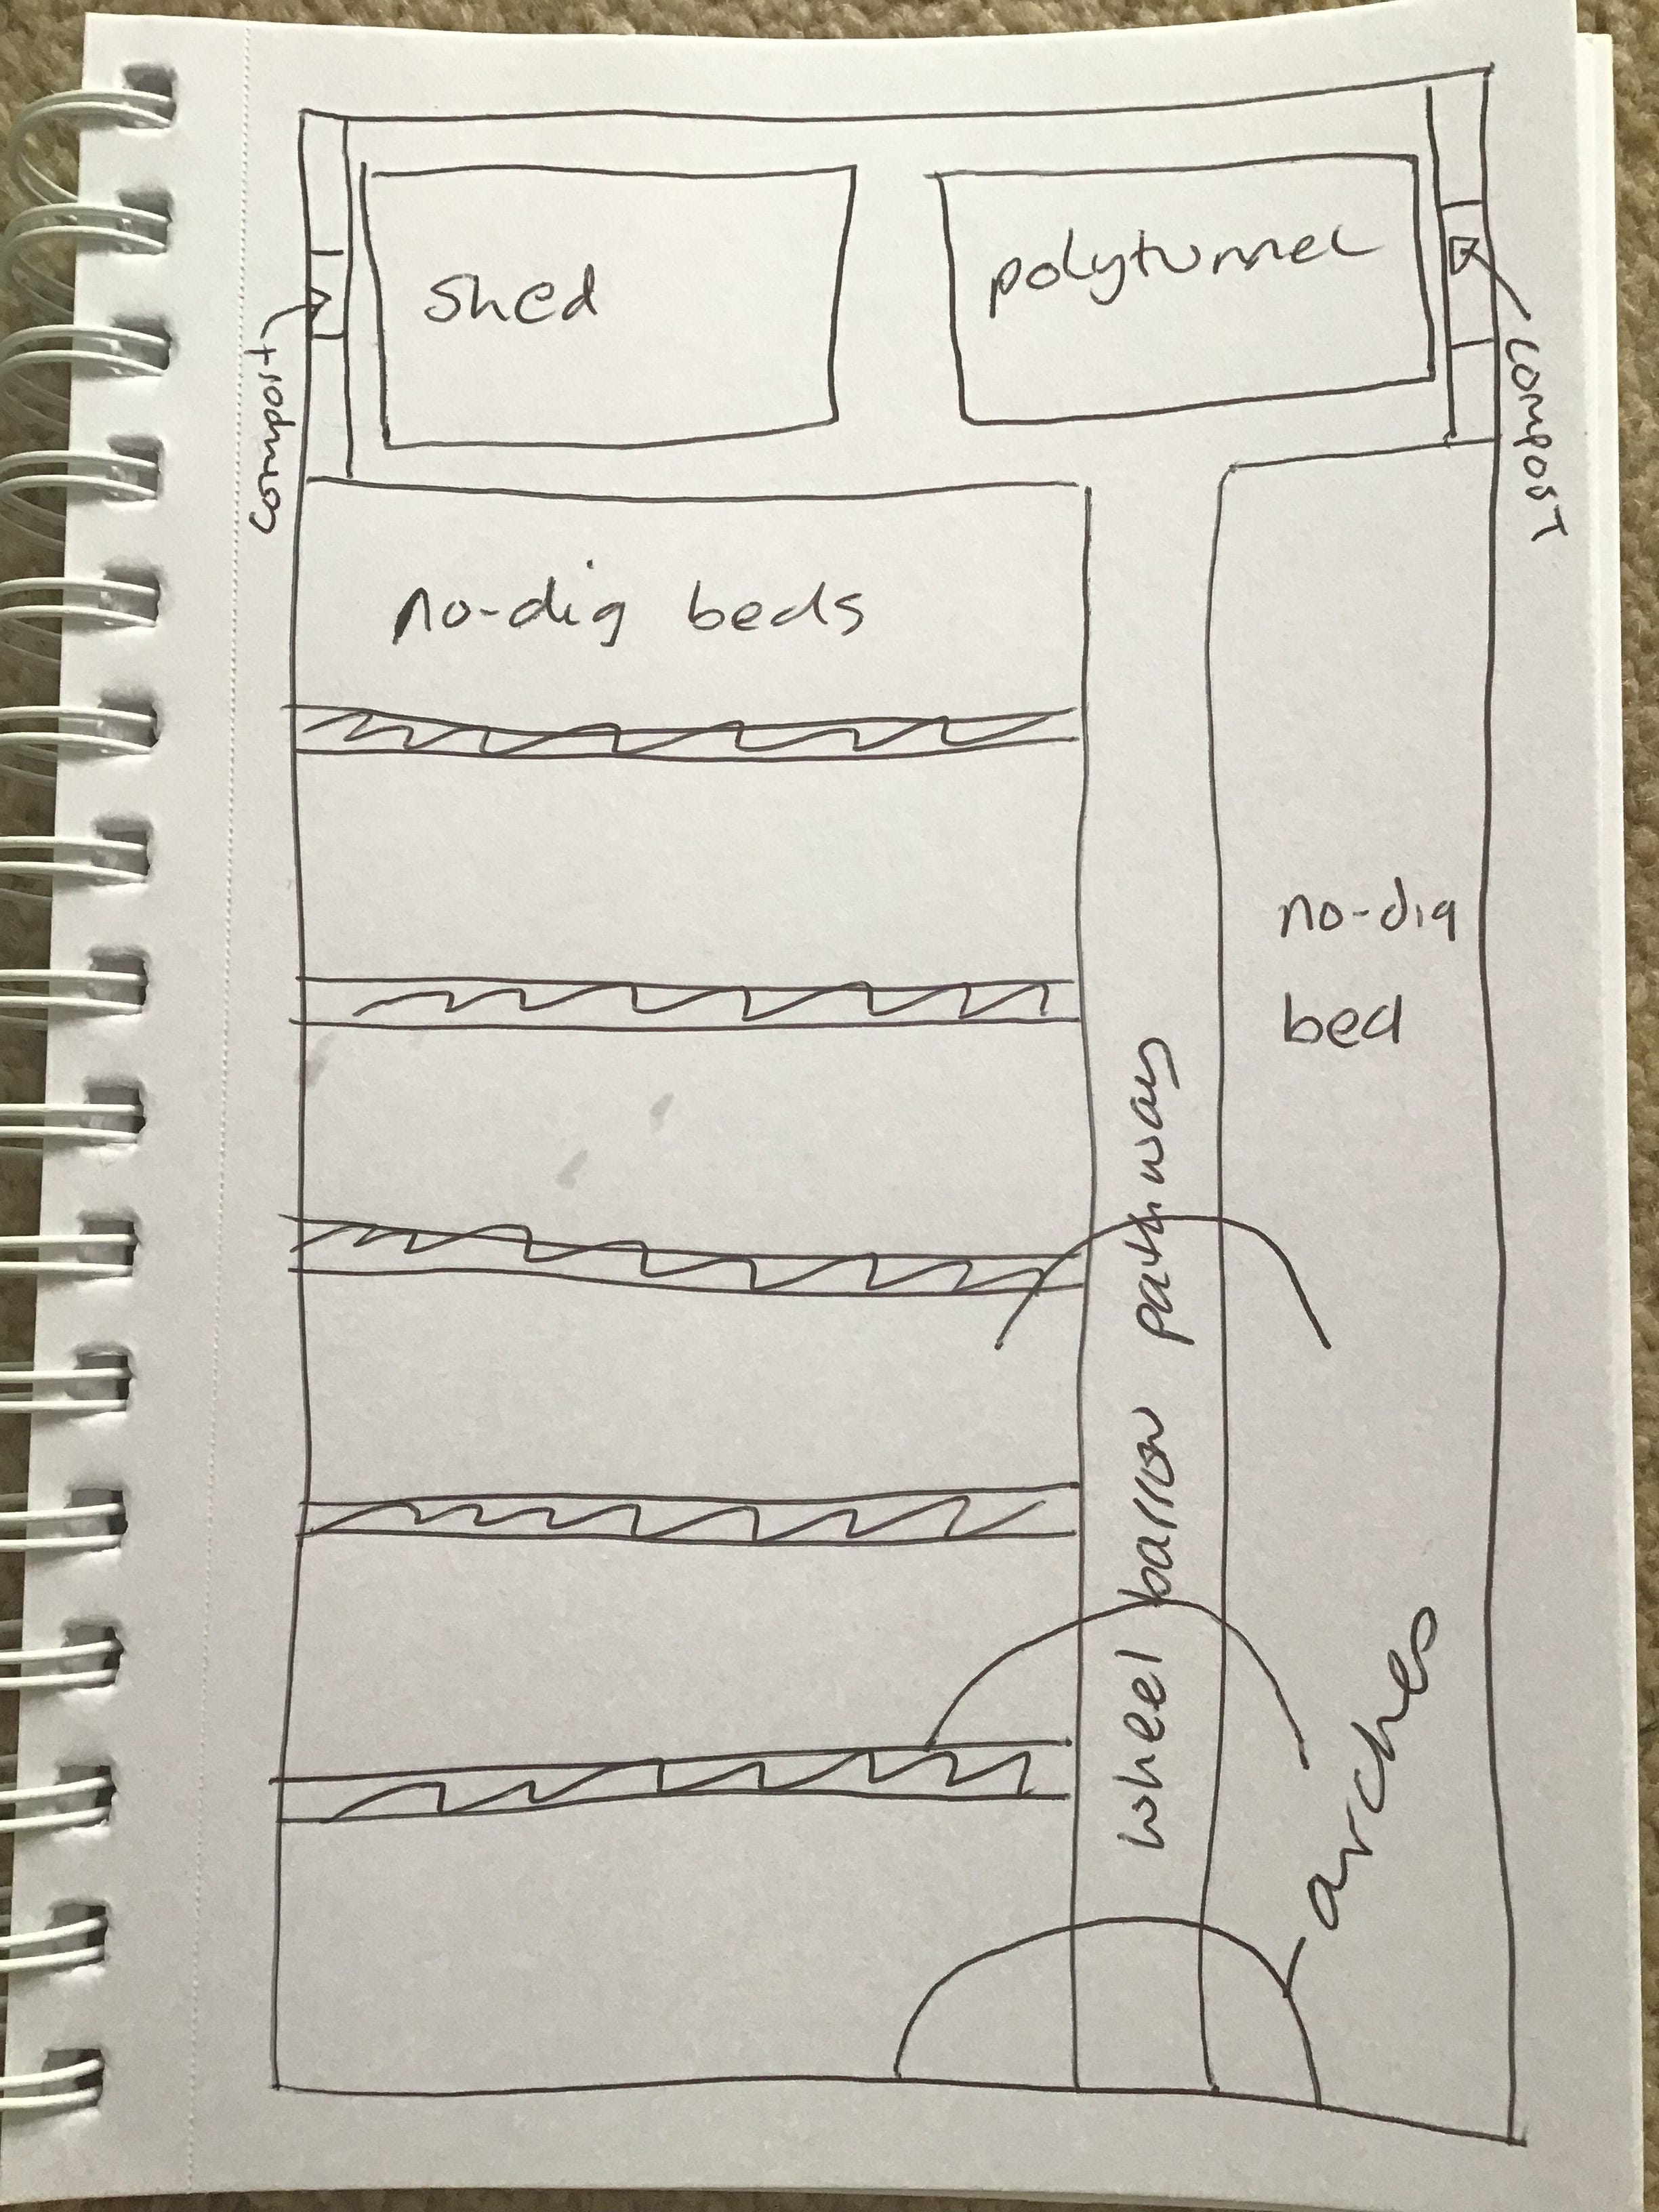 shed
polytunnel
compost
compost
no-dig beds
no-dig
bed
wheel barrow pathway
arches